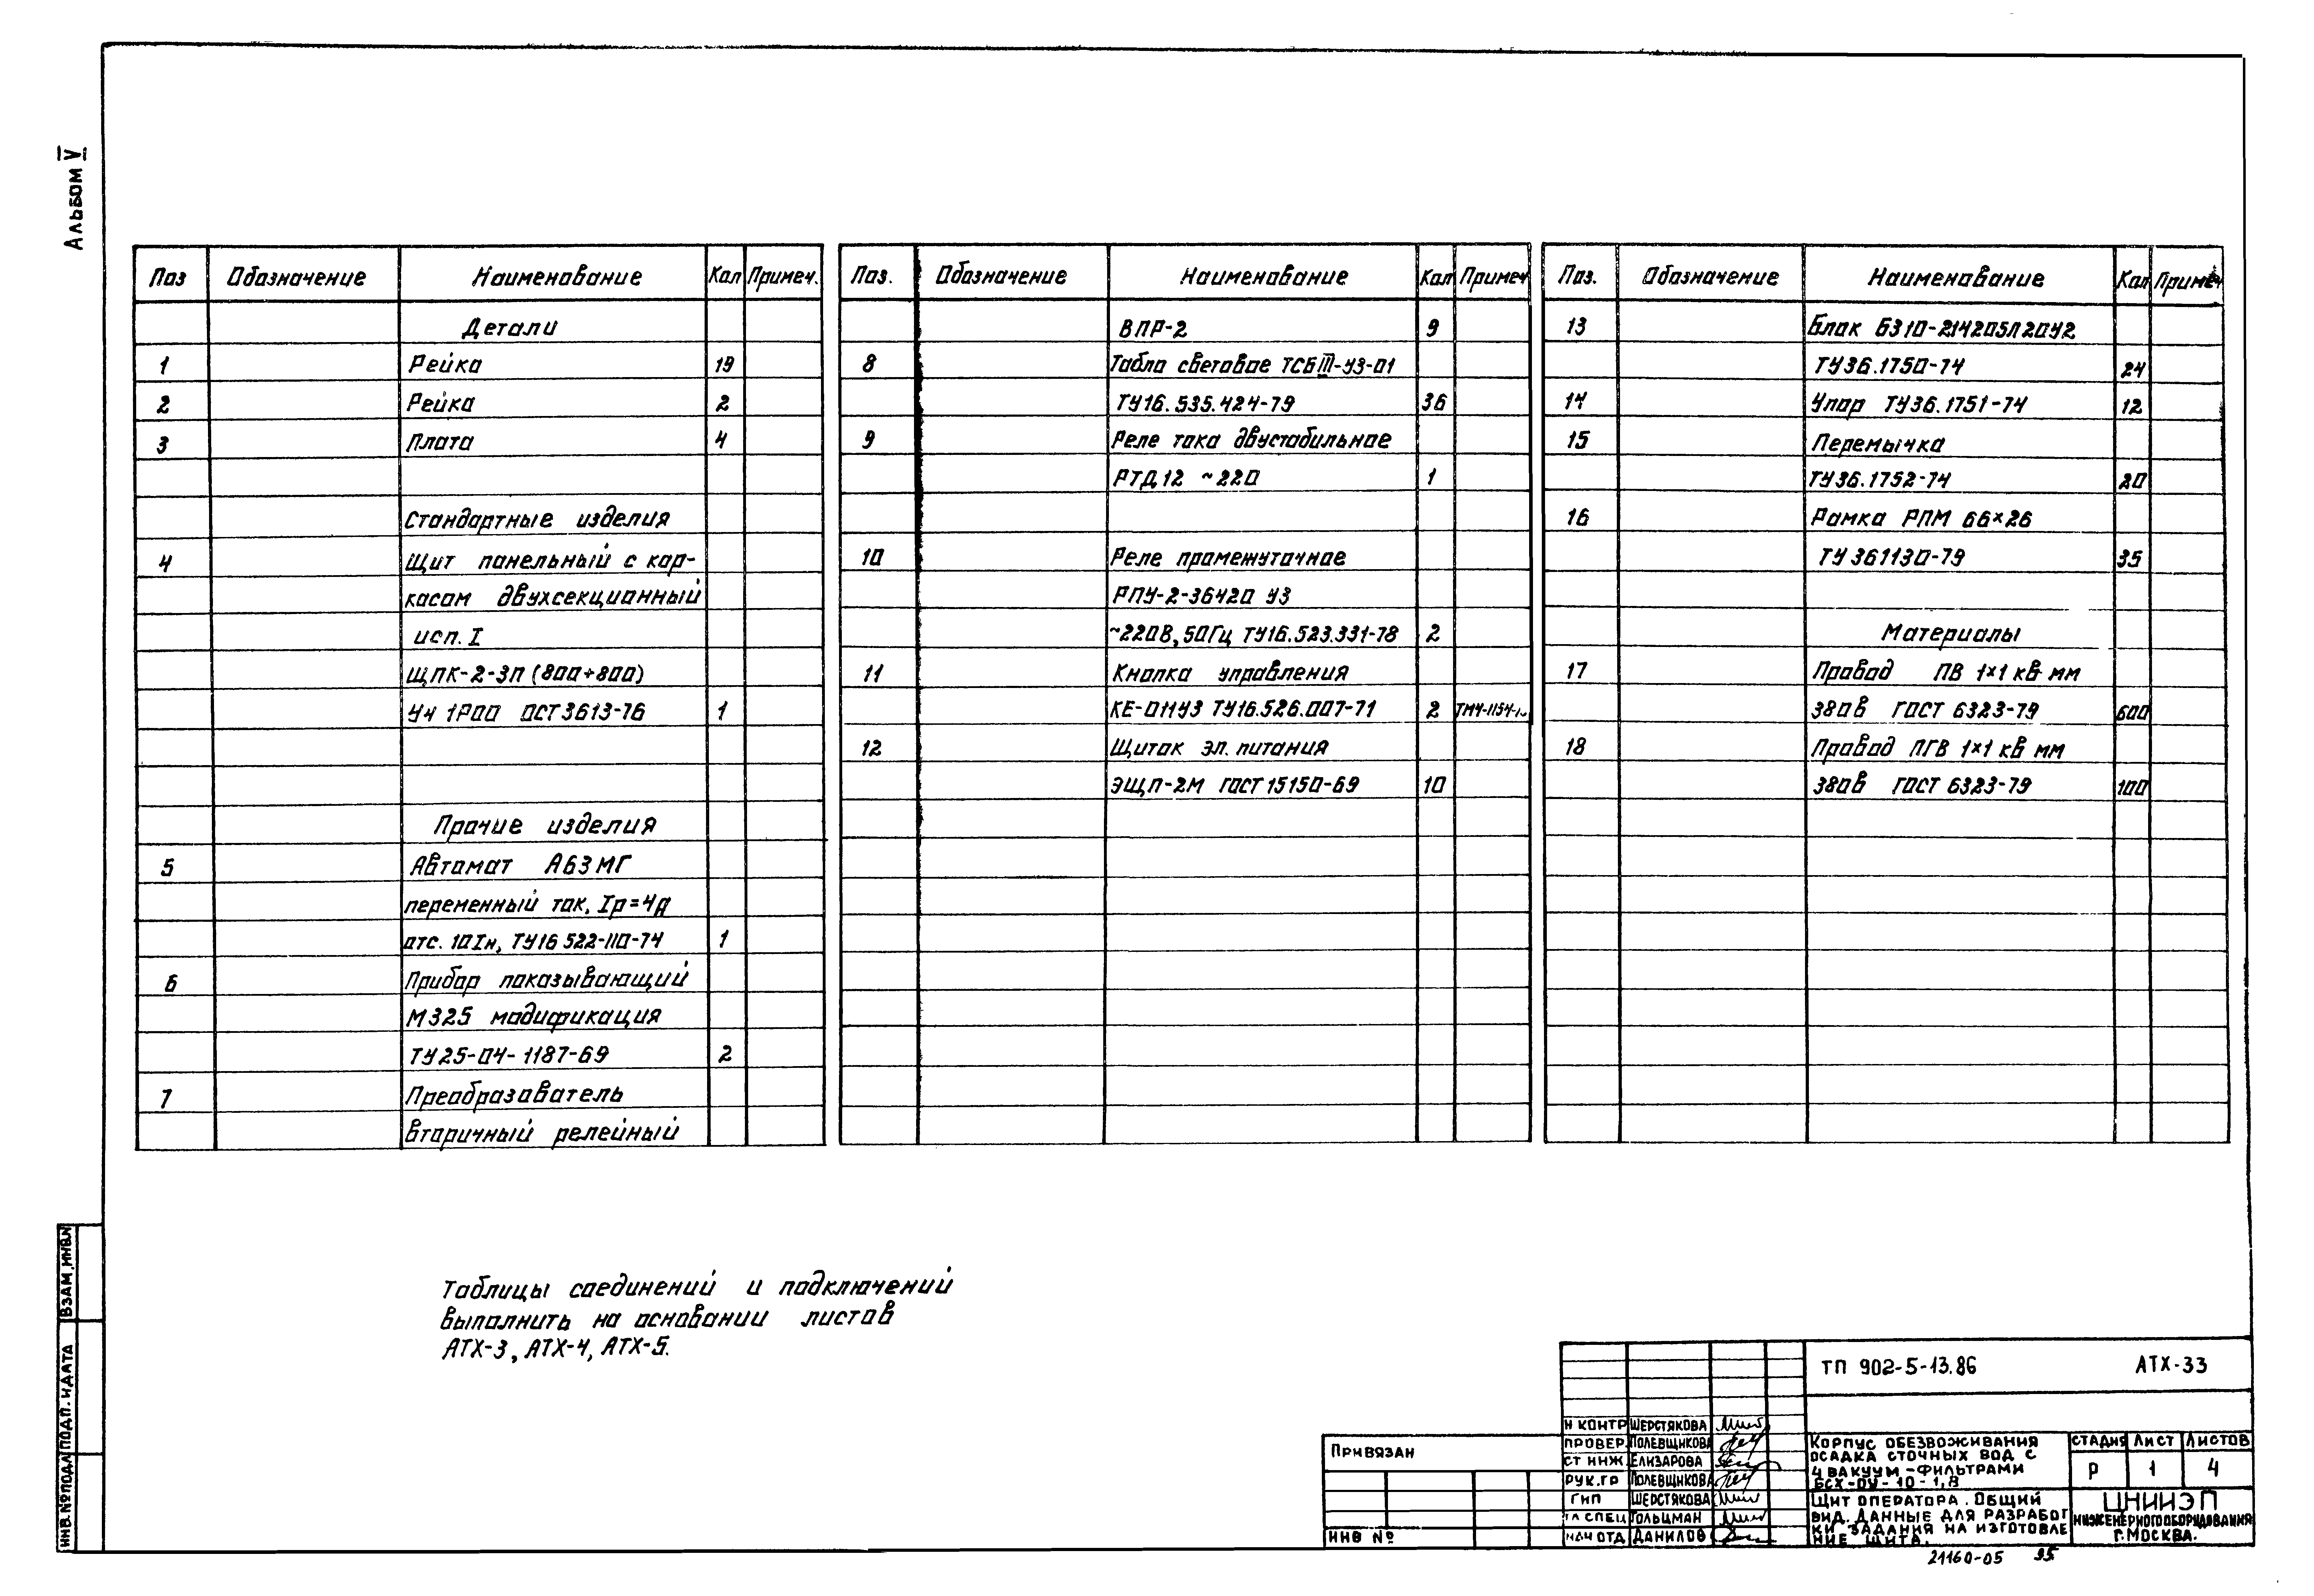 Альбом V
Поз Обозначение Наименование Кол Примеч.
Детали
1 Рейка 19
2 Рейка 2
3 Плата 4
Стандартные изделия
4 Щит панельный с кар-
касом двухсекционный
исп. I
ЩПК-2-ЗП (800+800)
У4 1Р00 ОСТ3613-76 1
Прочие изделия
5 Автомат А63МГ
переменный ток, Iр=4А
отс. 10Iн, ТУ16 522-110-74 1
6 Прибор показывающий
М325 модификация
ТУ25-04-1187-69 2
7 Преобразователь
вторичный релейный
Поз. Обозначение Наименование Кол Примеч
ВПР-2 9
8 Табло световое ТСБIII-У3-01
ТУ16.535.424-79 36
9 Реле тока двустабильное
РТД12 ~220 1
10 Реле промежуточное
РПУ-2-36420 У3
~220В, 50Гц ТУ16.523.331-78 2
11 Кнопка управления
КЕ-011У3 ТУ16.526.007-71 2
12 Щиток эл. питания
ЭЩП-2М ГОСТ15150-69 10
Поз. Обозначение Наименование Кол Примеч
13 Блок Б310-214205П20У2
ТУ36.1750-74 24
14 Упор ТУ36.1751-74 12
15 Перемычка
ТУ36.1752-74 20
16 Рамка РПМ 66×26
ТУ361130-79 35
Материалы
17 Провод ПВ 1×1 кв мм
380В ГОСТ 6323-79 600
18 Провод ПГВ 1×1 кв мм
380В ГОСТ 6323-79 100
Таблицы соединений и подключений
выполнить на основании листов
АТХ-3, АТХ-4, АТХ-5.
ВЗАМ. ИНВ.N
ПОДП. И ДАТА
ИНВ. № ПОДЛ
Привязан
ИНВ №
Н КОНТР ШЕРСТЯКОВА
ПРОВЕР. ПОЛЕВЩИКОВА
СТ ИНЖ ЕЛИЗАРОВА
РУК.ГР ПОЛЕВЩИКОВА
ГИП ШЕРСТЯКОВА
ГЛ СПЕЦ ГОЛЬЦМАН
НАЧ ОТД ДАНИЛОВ
ТП 902-5-13.86 АТХ-33
КОРПУС ОБЕЗВОЖИВАНИЯ
ОСАДКА СТОЧНЫХ ВОД С
4 ВАКУУМ-ФИЛЬТРАМИ
БСХ-ОУ-10-1,8
СТАДИЯ ЛИСТ ЛИСТОВ
Р 1 4
ЩИТ ОПЕРАТОРА. ОБЩИЙ
ВИД. ДАННЫЕ ДЛЯ РАЗРАБОТ
КИ ЗАДАНИЯ НА ИЗГОТОВЛЕ
НИЕ ЩИТА.
ЦНИИЭП
ИНЖЕНЕРНОГО ОБОРУДОВАНИЯ
Г.МОСКВА.
21160-05 95